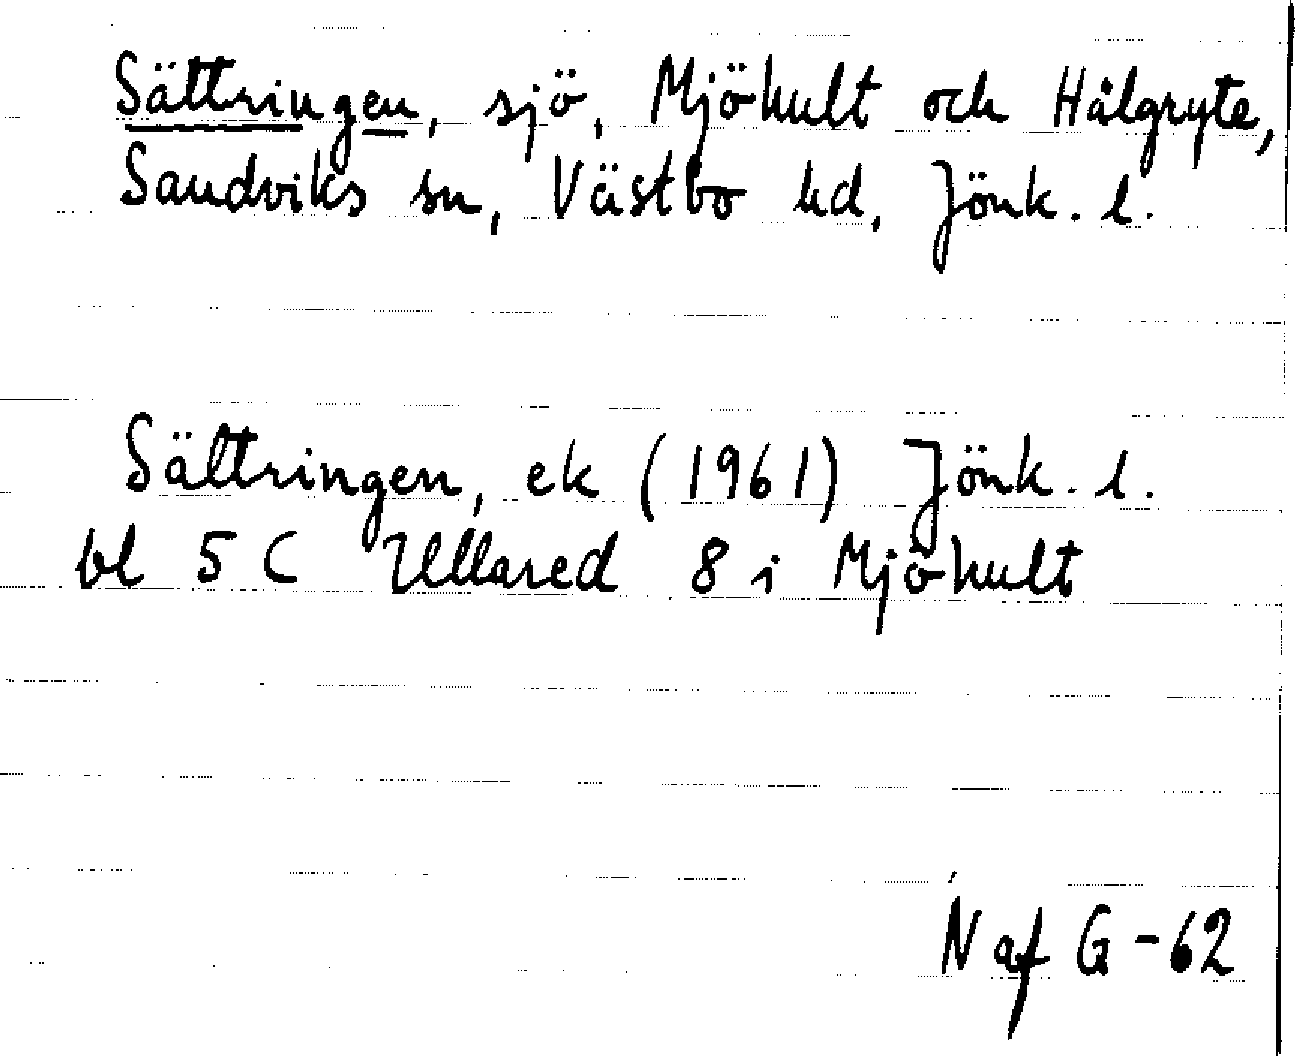 Sättringen, sjö, Mjöhult och Hålgryte,
Sandviks sn, Västbo hd, Jönk. l.
Sättringen, ek (1961) Jönk. l.
bl 5 C Ullared 8 i Mjöhult
N af G -62